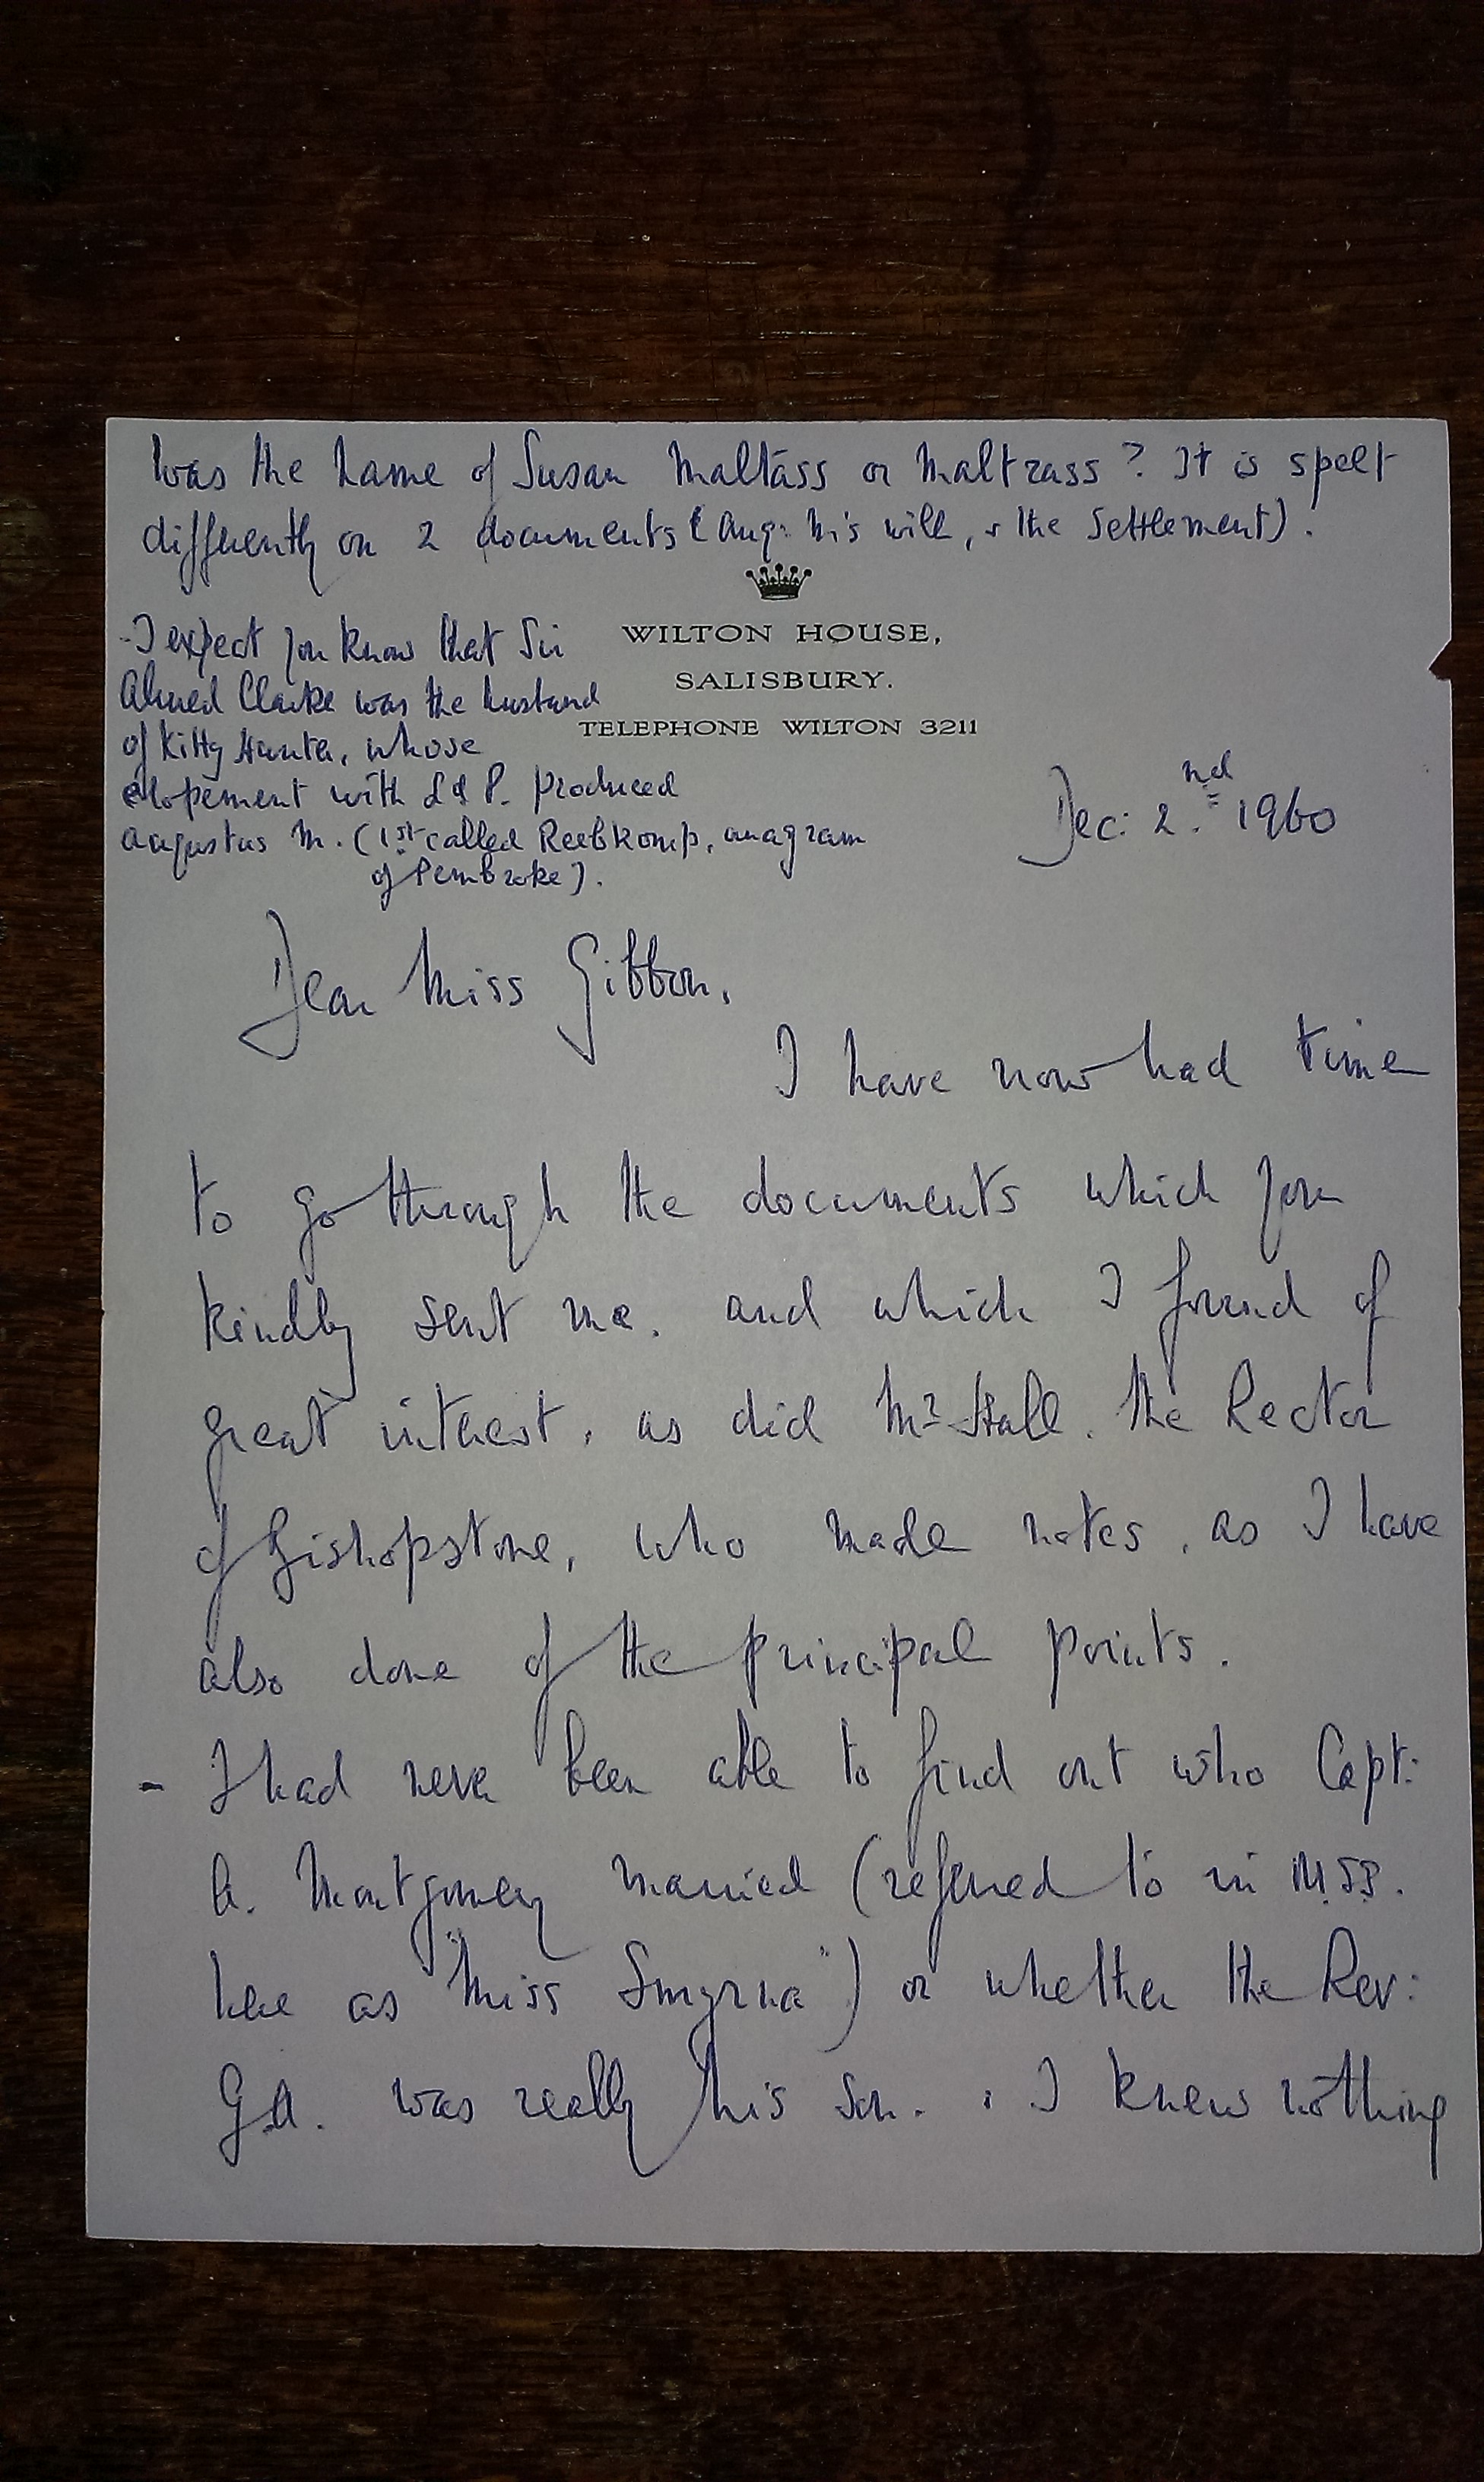 Was the name of Susan Maltass or Maltrass? It is spelt
differently on 2 documents (Aug: M's will, & the Settlement).
WILTON HOUSE,
SALISBURY.
TELEPHONE WILTON 3211
- I expect you know that Sir
Alured Clarke was the husband
of Kitty Hunter, whose
elopement with Ld P. produced
Augustus M. (1st called Reebkomp, anagram
of Pembroke).
Dec: 2nd 1960
Dear Miss Gibbon,
I have now had time
to go through the documents which you
kindly sent me, and which I found of
great interest, as did Mr Hall, the Rector
of Bishopstone, who made notes, as I have
also done of the principal points.
- I had never been able to find out who Capt:
A. Montgomery married (referred to in M.SS.
here as "Miss Smyrna") or whether the Rev:
G.A. was really his son. I knew nothing